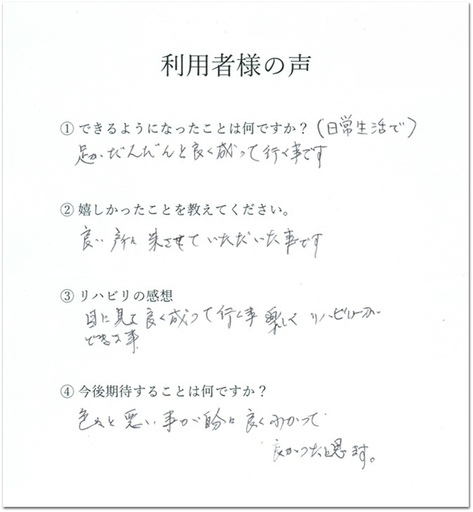 利用者様の声
① できるようになったことは何ですか？(日常生活で)
足が だんだんと良く成って行く事です
② 嬉しかったことを教えてください。
良い所に来させていただいた事です
③ リハビリの感想
目に見て良く成って行く事 楽しく リハビリーが
できる事
④ 今後期待することは何ですか？
色々と悪い事が 良く
良かったと思います。